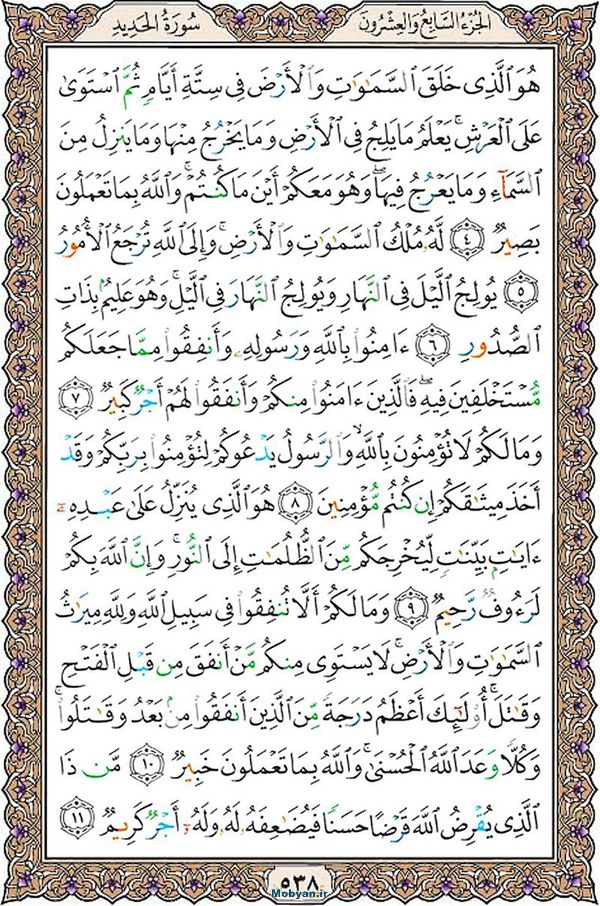 الجُزْءُ السَّابِعُ وَالعِشْرُونَ
سُورَةُ الحَدِيدِ
هُوَ ٱلَّذِى خَلَقَ ٱلسَّمَٰوَٰتِ وَٱلْأَرْضَ فِى سِتَّةِ أَيَّامٍ ثُمَّ ٱسْتَوَىٰ
عَلَى ٱلْعَرْشِ ۚ يَعْلَمُ مَا يَلِجُ فِى ٱلْأَرْضِ وَمَا يَخْرُجُ مِنْهَا وَمَا يَنزِلُ مِنَ
ٱلسَّمَآءِ وَمَا يَعْرُجُ فِيهَا ۖ وَهُوَ مَعَكُمْ أَيْنَ مَا كُنتُمْ ۚ وَٱللَّهُ بِمَا تَعْمَلُونَ
بَصِيرٌ ﴿٤﴾ لَّهُۥ مُلْكُ ٱلسَّمَٰوَٰتِ وَٱلْأَرْضِ ۚ وَإِلَى ٱللَّهِ تُرْجَعُ ٱلْأُمُورُ
﴿٥﴾ يُولِجُ ٱلَّيْلَ فِى ٱلنَّهَارِ وَيُولِجُ ٱلنَّهَارَ فِى ٱلَّيْلِ ۚ وَهُوَ عَلِيمٌۢ بِذَاتِ
ٱلصُّدُورِ ﴿٦﴾ ءَامِنُوا۟ بِٱللَّهِ وَرَسُولِهِۦ وَأَنفِقُوا۟ مِمَّا جَعَلَكُم
مُّسْتَخْلَفِينَ فِيهِ ۖ فَٱلَّذِينَ ءَامَنُوا۟ مِنكُمْ وَأَنفَقُوا۟ لَهُمْ أَجْرٌ كَبِيرٌ ﴿٧﴾
وَمَا لَكُمْ لَا تُؤْمِنُونَ بِٱللَّهِ ۙ وَٱلرَّسُولُ يَدْعُوكُمْ لِتُؤْمِنُوا۟ بِرَبِّكُمْ وَقَدْ
أَخَذَ مِيثَٰقَكُمْ إِن كُنتُم مُّؤْمِنِينَ ﴿٨﴾ هُوَ ٱلَّذِى يُنَزِّلُ عَلَىٰ عَبْدِهِۦٓ
ءَايَٰتٍۭ بَيِّنَٰتٍ لِّيُخْرِجَكُم مِّنَ ٱلظُّلُمَٰتِ إِلَى ٱلنُّورِ ۚ وَإِنَّ ٱللَّهَ بِكُمْ
لَرَءُوفٌ رَّحِيمٌ ﴿٩﴾ وَمَا لَكُمْ أَلَّا تُنفِقُوا۟ فِى سَبِيلِ ٱللَّهِ وَلِلَّهِ مِيرَٰثُ
ٱلسَّمَٰوَٰتِ وَٱلْأَرْضِ ۚ لَا يَسْتَوِى مِنكُم مَّنْ أَنفَقَ مِن قَبْلِ ٱلْفَتْحِ
وَقَٰتَلَ ۚ أُو۟لَٰٓئِكَ أَعْظَمُ دَرَجَةً مِّنَ ٱلَّذِينَ أَنفَقُوا۟ مِنۢ بَعْدُ وَقَٰتَلُوا۟ ۚ
وَكُلًّا وَعَدَ ٱللَّهُ ٱلْحُسْنَىٰ ۚ وَٱللَّهُ بِمَا تَعْمَلُونَ خَبِيرٌ ﴿١٠﴾ مَّن ذَا
ٱلَّذِى يُقْرِضُ ٱللَّهَ قَرْضًا حَسَنًا فَيُضَٰعِفَهُۥ لَهُۥ وَلَهُۥٓ أَجْرٌ كَرِيمٌ ﴿١١﴾
٥٣٨
Mobyan.ir